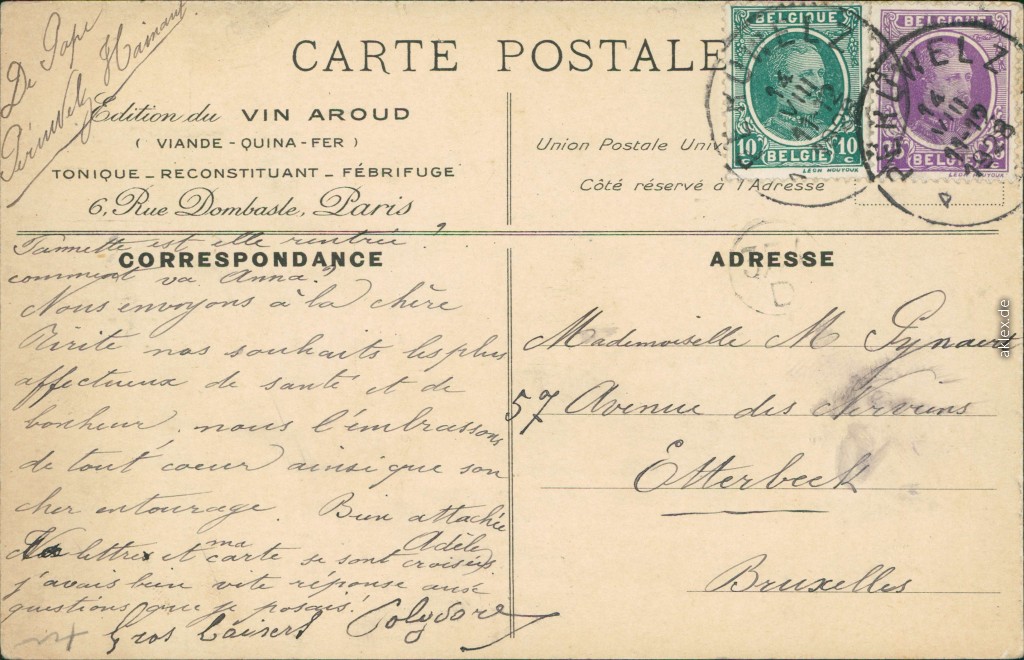 De Pape
Péruwelz Hainaut
CARTE POSTALE
Edition du VIN AROUD
( VIANDE - QUINA - FER )
TONIQUE _ RECONSTITUANT _ FÉBRIFUGE
6, Rue Dombasle, Paris
Union Postale Uni
Côté réservé à l'Adresse
BELGIQUE
10 BELGIË 10
c
LEGN HOUYOUX
BELGIQUE
BELGIË
PERUWELZ
14 VIII
11-12
1928
est elle rentrée ?
comment va Anna ?
CORRESPONDANCE
Nous envoyons à la chère
nos souhaits les plus
affectueux de santé et de
bonheur. nous l'embrassons
de tout coeur ainsi que son
cher entourage. Bien attachée
Adèle
lettre et ma carte se sont croisées
j'avais bien vite réponse aux
questions que je posais!
Gros baisers Polydore
ADRESSE
Mademoiselle M Pynaert
57 Avenue des Nerviens
Etterbeek
Bruxelles
aklex.de